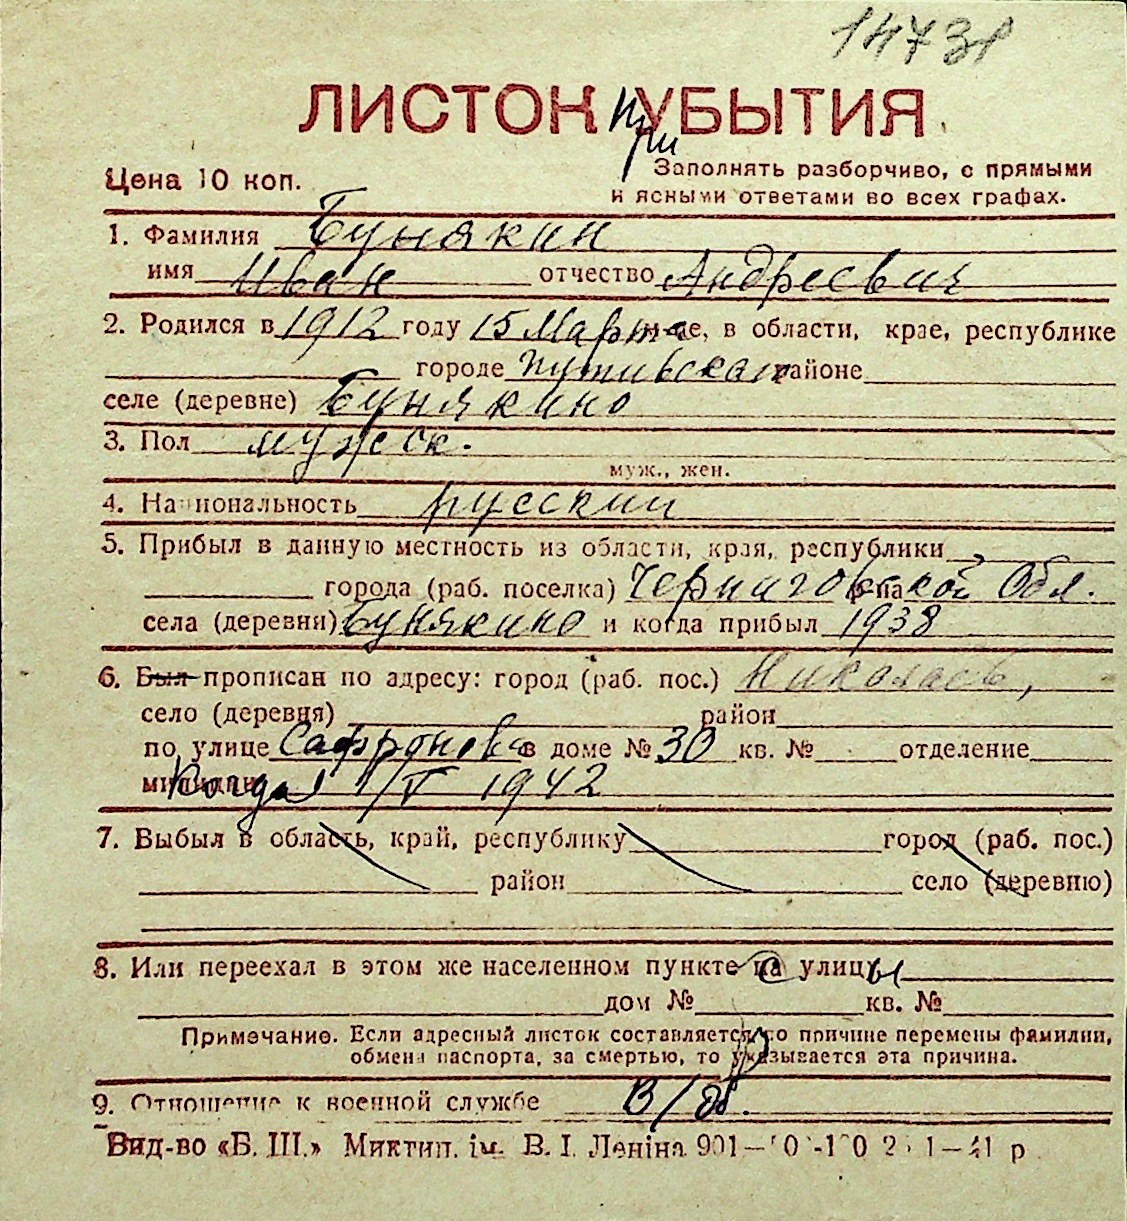 14731
ЛИСТОК при УБЫТИЯ
Цена 10 коп.
Заполнять разборчиво, с прямыми
и ясными ответами во всех графах.
1. Фамилия Бунякин
имя Иван отчество Андреевич
2. Родился в 1912 году 15 Марта м-це, в области, крае, республике
городе Путивьском районе
селе (деревне) Бунякино
3. Пол мужск.
муж., жен.
4. Национальность русский
5. Прибыл в данную местность из области, края, республики
города (раб. поселка) Черниговской Обл.
села (деревни) Бунякино и когда прибыл 1938
6. Был прописан по адресу: город (раб. пос.) Николаев,
село (деревня) район
по улице Сафронова в доме № 30 кв. № отделение
милиции Когда 1/V 1942
7. Выбыл в область, край, республику город (раб. пос.)
район село (деревню)
8. Или переехал в этом же населенном пункте с улицы
дом № кв. №
Примечание. Если адресный листок составляется по причине перемены фамилии,
обмена паспорта, за смертью, то указывается эта причина.
9. Отношение к военной службе В/об.
Вид-во «Б. Ш.» Миктип. ім. В. І. Леніна 901—